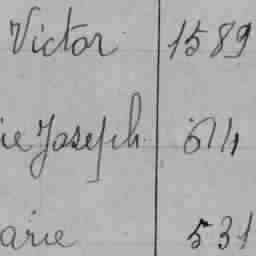 Victor 1589
ie Joseph 514
arie 531